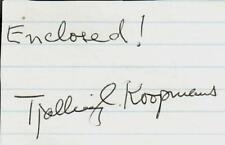 Enclosed!
Tjalling C. Koopmans